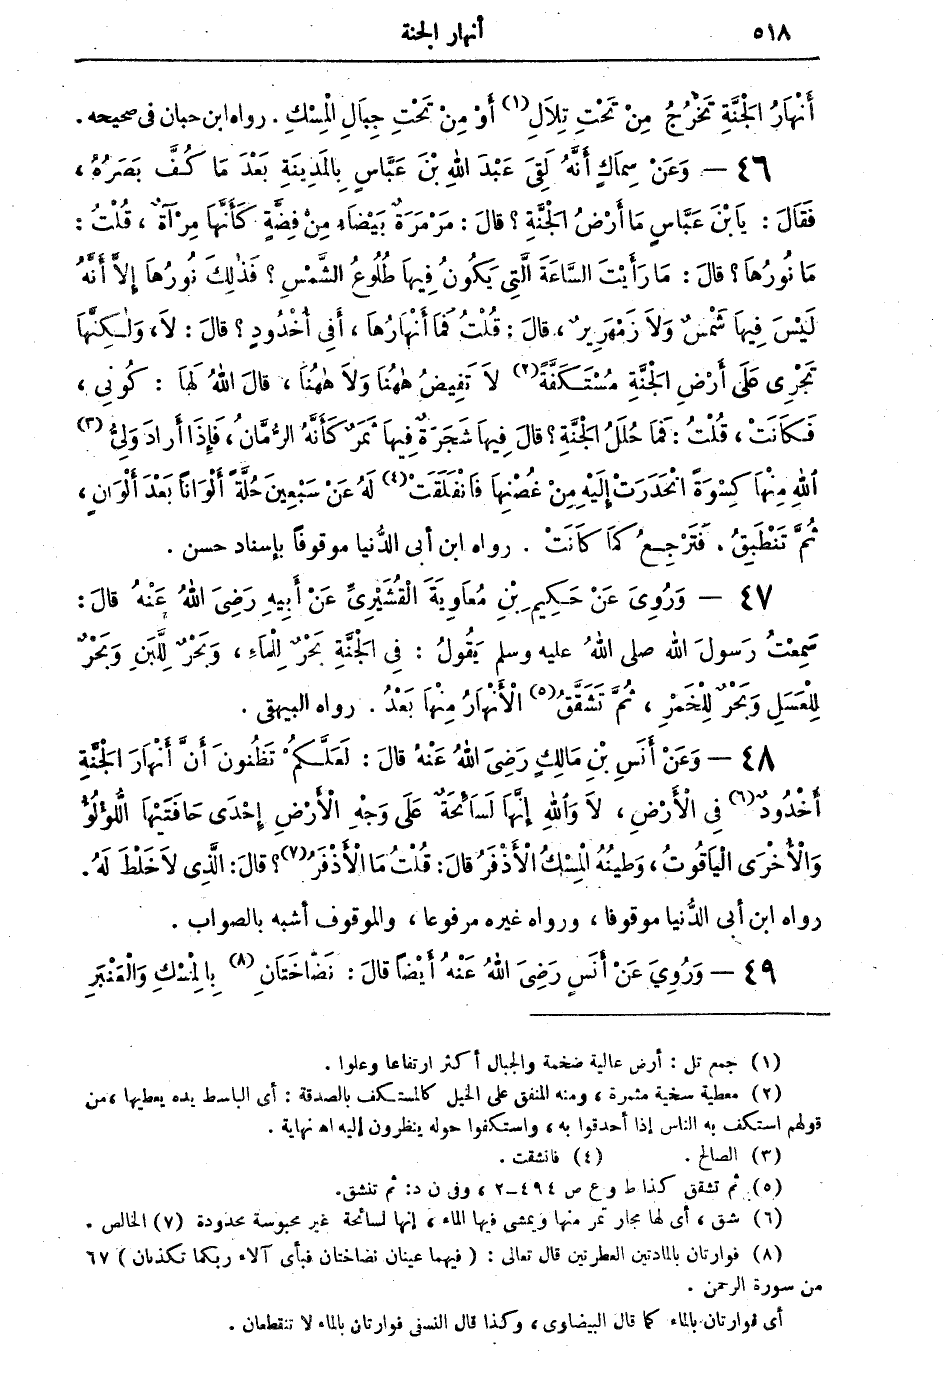 ٥١٨ أنهار الجنة
أَنْهَارُ الْجَنَّةِ تَخْرُجُ مِنْ تَحْتِ تِلَالِ (١) أَوْ مِنْ تَحْتِ جِبَالِ الْمِسْكِ . رواه ابن حبان فى صحيحه .
٤٦ — وَعَنْ سِمَاكٍ أَنَّهُ لَقِىَ عَبْدَ اللهِ بْنَ عَبَّاسٍ بِالْمَدِينَةِ بَعْدَ مَا كُفَّ بَصَرُهُ ،
فَقَالَ : يَابْنَ عَبَّاسٍ مَا أَرْضُ الْجَنَّةِ ؟ قالَ : مَرْمَرَةٌ بَيْضَاءُ مِنْ فِضَّةٍ كَأَنَّهَا مِرْآةٌ ، قُلْتُ :
مَا نُورُهَا ؟ قالَ : مَا رَأَيْتَ السَّاعَةَ الَّتِى يَكُونُ فِيهَا طُلُوعُ الشَّمْسِ ؟ فَذٰلِكَ نُورُهَا إِلاَّ أَنَّهُ
لَيْسَ فِيهَا شَمْسٌ وَلاَ زَمْهَرِيرٌ ، قالَ : قُلْتُ فَمَا أَنْهَارُهَا ، أَفِى أُخْدُودٍ ؟ قالَ : لاَ ، وَلٰكِنَّهَا
تَجْرِى عَلَى أَرْضِ الْجَنَّةِ مُسْتَكِفَّةً (٢) لاَ تَفِيضُ هٰهُنَا وَلاَ هٰهُنَا ، قالَ اللهُ لَهَا : كُونِى ،
فَكَانَتْ ، قُلْتُ : فَمَا حُلَلُ الْجَنَّةِ ؟ قالَ فِيهَا شَجَرَةٌ فِيهَا ثَمَرٌ كَأَنَّهُ الرُّمَّانُ ، فَإِذَا أَرَادَ وَلِيُّ (٣)
اللهِ مِنْهَا كِسْوَةً انْحَدَرَتْ إِلَيْهِ مِنْ غُصْنِهَا فَانْفَلَقَتْ (٤) لَهُ عَنْ سَبْعِينَ حُلَّةً أَلْوَانًا بَعْدَ أَلْوَانٍ ،
ثُمَّ تَنْطَبِقُ . فَتَرْجِعُ كَمَا كَانَتْ . رواه ابن أبى الدُّنيا موقوفاً بإسناد حسن .
٤٧ — وَرُوِىَ عَنْ حَكِيمِ بْنِ مُعَاوِيَةَ الْقُشَيْرِىِّ عَنْ أَبِيهِ رَضِىَ اللهُ عَنْهُ قالَ :
سَمِعْتُ رَسولَ الله صلى اللهُ عليه وسلم يَقُولُ : فِى الْجَنَّةِ بَحْرٌ لِلْمَاءِ ، وَبَحْرٌ لِلَّبَنِ وَبَحْرٌ
لِلْعَسَلِ وَبَحْرٌ لِلْخَمْرِ ، ثُمَّ تَشَقَّقُ (٥) الْأَنْهَارُ مِنْهَا بَعْدُ . رواه البيهقى .
٤٨ — وَعَنْ أَنَسِ بْنِ مَالِكٍ رَضِىَ اللهُ عَنْهُ قالَ : لَعَلَّكُمْ تَظُنُّونَ أَنَّ أَنْهَارَ الْجَنَّةِ
أُخْدُودٌ (٦) فِى الْأَرْضِ ، لاَ وَاللهِ إِنَّهَا لَسَائِحَةٌ عَلَى وَجْهِ الْأَرْضِ إِحْدَى حَافَتَيْهَا اللُّؤْلُؤُ
وَالْأُخْرَى الْيَاقُوتُ ، وَطِينُهُ الْمِسْكُ الْأَذْفَرُ قالَ : قُلْتُ مَا الْأَذْفَرُ (٧) ؟ قالَ : الَّذِى لاَ خَلْطَ لَهُ .
رواه ابن أبى الدُّنيا موقوفا ، ورواه غيره مرفوعا ، والموقوف أشبه بالصواب .
٤٩ — وَرُوِيَ عَنْ أَنَسٍ رَضِىَ اللهُ عَنْهُ أَيْضًا قالَ : نَضَّاخَتَانِ (٨) بِالْمِسْكِ وَالْعَنْبَرِ
(١) جمع تل : أرض عالية ضخمة والجبال أكثر ارتفاعا وعلوا .
(٢) معطية سخية مثمرة ، ومنه المنفق على الخيل كالمستكف بالصدقة : أى الباسط يده يعطيها ، من
قولهم استكف به الناس إذا أحدقوا به ، واستكفوا حوله ينظرون إليه اه نهاية .
(٣) الصالح . (٤) فانشقت .
(٥) ثم تشقق كذا ط و ع ص ٤٩٤-٢ ، وفى ن د : ثم تنشق .
(٦) شق ، أى لها مجار تمر منها ويمشى فيها الماء ، إنها لسائحة غير محبوسة محدودة (٧) الخالص .
(٨) فوارتان بالمادتين العطرتين قال تعالى : ( فيهما عينان نضاختان فبأى آلاء ربكما تكذبان ) ٦٧
من سورة الرحمن .
أى فوارتان بالماء كما قال البيضاوى ، وكذا قال النسفى فوارتان بالماء لا تنقطعان .